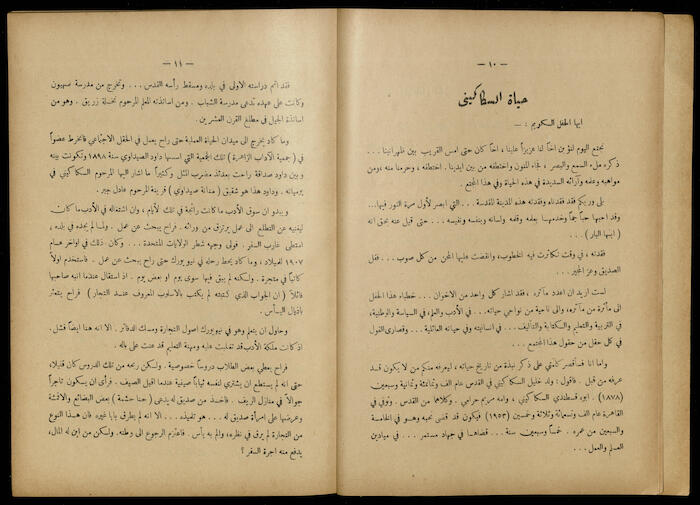 — ١٠ —
حياة السكاكيني
ايها الحفل الكريم : —
نجتمع اليوم لنؤبن اخاً لنا عزيزاً علينا ، اخاً كان حتى امس القريب بين ظهرانينا ...
ذكره ملء السمع والبصر ، فجاءه المنون واختطفه من بين ايدينا . اختطفه ، وحرمنا منه ، ومن
مواهبه وعلمه وآرائه السديدة في هذه الحياة وفي هذا المجتمع .
بلى وربكم فقد فقدناه وفقدته هذه المدينة المقدسة ... التي ابصر لأول مرة النور فيها ...
وقد احبها حباً جماً وخدمها بعلمه وقلمه ولسانه وبنفسه ونفيسه ... حتى قيل عنه بحق انه
( ابنها البار ) ...
فقدته ، في وقت تكاثرت فيه الخطوب ، وانقضت عليها المحن من كل صوب ... فقل
الصديق وعز المجير ...
لست اريد ان اعدد مآثره . فقد اشار كل واحد من الاخوان ... خطباء هذا الحفل
الى مأثرة من مآثره ، والى ناحية من نواحي حياته ... في الأدب والعلم ، في السياسة والوطنية ،
في التربية والتعليم والكتابة والتأليف ... في انسانيته وفي حياته العائلية ... وقصارى القول
في كل حقل من حقول هذا المجتمع ...
واما انا فسأقصر كلمتي على ذكر نبذة من تاريخ حياته ، ليعرفه منكم من لا يكون قد
عرفه من قبل . فأقول : ولد خليل السكاكيني في القدس عام الف وثمانمائة وثمانية وسبعين
(١٨٧٨) . ابوه قسطندي السكاكيني ، وامه مريم حرامي . وكلاهما من القدس . وتوفي في
القاهرة عام الف وتسعمائة وثلاثة وخمسين (١٩٥٣) فيكون قد قضى نحبه وهو في الخامسة
والسبعين من عمره . خمساً وسبعين سنة ... قضاها في جهاد مستمر ... في ميادين
العلم والعمل ...
— ١١ —
فقد اتم دراسته الاولى في بلده ومسقط رأسه القدس ... وتخرج من مدرسة صهيون
وكانت على عهده تدعى مدرسة الشباب . ومن اساتذته المعلم المرحوم نخلة زريق . وهو من
اساتذة الجيل في مطلع القرن العشرين .
وما كاد يخرج الى ميدان الحياة العملية حتى راح يعمل في الحقل الاجتماعي فانخرط عضواً
في ( جمعية الآداب الزاهرة ) تلك الجمعية التي اسسها داود الصيداوي سنة ١٨٩٨ وتكونت بينه
وبين داود صداقة راحت بعدئذ مضرب المثل وكثيراً ما اشار اليها المرحوم السكاكيني في
يومياته . وداود هذا هو شقيق ( متانة صيداوي ) قرينة المرحوم عادل جبر .
ويبدو ان سوق الأدب ما كانت رائجة في تلك الأيام ، وان اشتغاله في الأدب ما كان
ليغنيه عن التطلع الى عمل يرتزق من ورائه . فراح يبحث عن عمل . ولما لم يجده في بلده ،
امتطى غارب السفر . فولى وجهه شطر الولايات المتحدة ... وكان ذلك في اواخر عام
١٩٠٧ للميلاد ، وما كاد يحط رحله في نيويورك حتى راح يبحث عن عمل . فاستخدم اولاً
كاتباً في متجرة . ولكنه لم يبق فيها سوى يوم او بعض يوم . اذ استقال عندما انبه صاحبها
قائلاً ( ان الجواب الذي كتبته لم يكتب بالاسلوب المعروف عند التجار ) فراح يتعثر
باذيال اليأس .
وحاول ان يتعلم وهو في نيويورك اصول التجارة ومسك الدفاتر . الا انه هنا ايضاً فشل .
اذ كانت ملكة الأدب قد تغلبت عليه ومهنة التعليم قد عنت على باله .
فراح يعطي بعض الطلاب دروساً خصوصية . ولكن ربحه من تلك الدروس كان قليلا،
حتى انه لم يستطع ان يشتري لنفسه ثياباً صيفية عندما اقبل الصيف . فرأى ان يكون تاجراً
جوالاً في منازل الريف . فاخذ من صديق له يدعى ( حنا حشمة ) بعض البضائع والاقمشة
وعرضها على امرأة صديق له ... هو تفيذه ... الا انه لم يطرق بابا غيره فان هذا النوع
من التجارة لم يرق في نظره ، والم به يأس . فاعتزم الرجوع الى وطنه . ولكن من اين له المال،
يدفع منه اجرة السفر ؟